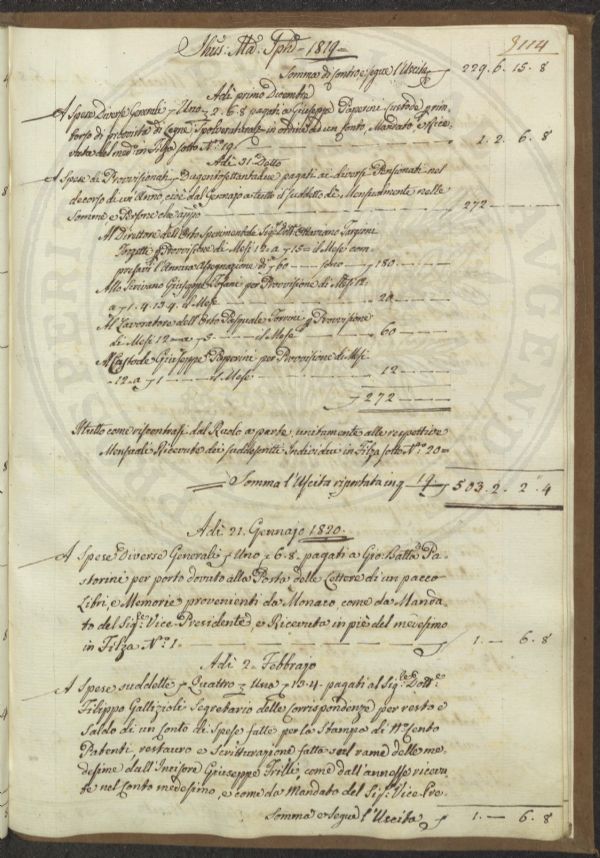 Jhus: Ma: Jph - 1819 =
3114
Somma di contro e segue l'Uscita 229. 6. 15. 8
Adi primo Dicembre
A Spese Diverse Generali Uno 2. 6. 8 pagati a Giuseppe Paperini Custode a rim-
borso di provvista di Legne Spolveratura in ordine ad un Conto, Mandato e Rice-
vuta del med.º in Filza sotto N.º 19 1. 2. 6. 8
Adi 31 Detto
A Spese di Provvisionati Dugentosettantadue pagati ai diversi Pensionati nel
decorso di un'Anno, cioè dal Gennajo a tutto il suddetto di Mensualmente nelle
Somme e Persone che app.º 272
Al Direttore dell'Orto Sperimentale Sig.r Dott. Ottaviano Targioni
Tozzetti Provvisione di Mesi 12 a 15 = il Mese com
presavi l'Annua Assegnazione di 60 sono 180
Allo Scrivano Giuseppe Tofani per Provvisione di Mesi 12
a 1. 4. 13. 4. il Mese 20
Al Lavoratore dell'Orto Pasquale Provvisione
di Mesi 12 a 5 il Mese 60
Al Custode Giuseppe Paperini per Provvisione di Mesi
12 a 1 il Mese 12
272
Il tutto come riscontrasi dal Ruolo a parte, unitamente alle respettive
Mensuali Ricevute dei suddescritti Individui in Filza sotto N.º 20 =
Somma l'Uscita riportata in q 19 503. 2. 2. 4
Adi 21. Gennajo 1820.
A Spese Diverse Generali Uno 6. 8. pagati a Gio: Batta Pa-
storini per porto dovuto alla Posta delle Lettere di un pacco
Libri, e Memorie provenienti da Monaco, come da Manda-
to del Sig.re Vice Presidente, e Ricevuta in piè del medesimo
in Filza N.º 1 1. — 6. 8
Adi 2. Febbrajo
A Spese suddette Quattro Una 13. 4. pagati al Sig.re Dott.re
Filippo Gallizioli Segretario delle Corrispondenze per resto e
Saldo di un Conto di Spese fatte per la Stampa di N.º Cento
Patenti, restauro e Scritturazione fatta sul rame delle me-
desime dall'Incisore Giuseppe come dall'annessa ricevu-
ta nel Conto medesimo, e come da Mandato del Sig.r Vice Pre-
Somma e segue l'Uscita 1. — 6. 8